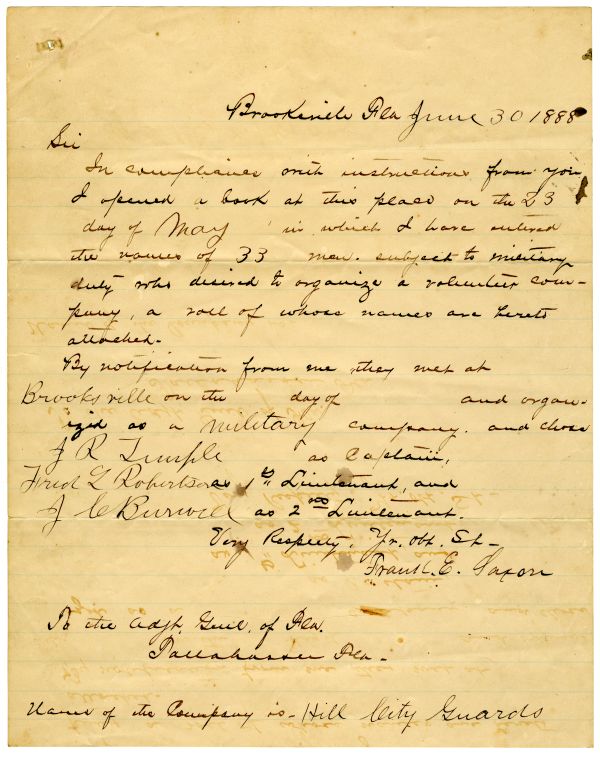 Brooksville Fla June 30 1888
Sir
In compliance with instructions from you
I opened a book at this place on the 23
day of May in which I have entered
the names of 33 men. subject to military
duty who desired to organize a volunteer com-
pany, a roll of whose names are hereto
attached.
By notification from me they met at
Brooksville on the day of and organ-
ized as a military company. and chose
J R Temple as Captain,
Fred L Robertson as 1st Lieutenant, and
J C Burwell as 2nd Lieutenant.
Very Respecty, Yr. obt. St-
Frank. E. Saxon
To the Adjt, Genl, of Fla.
Tallahassee Fla-
Name of the Company is- Hill City Guards